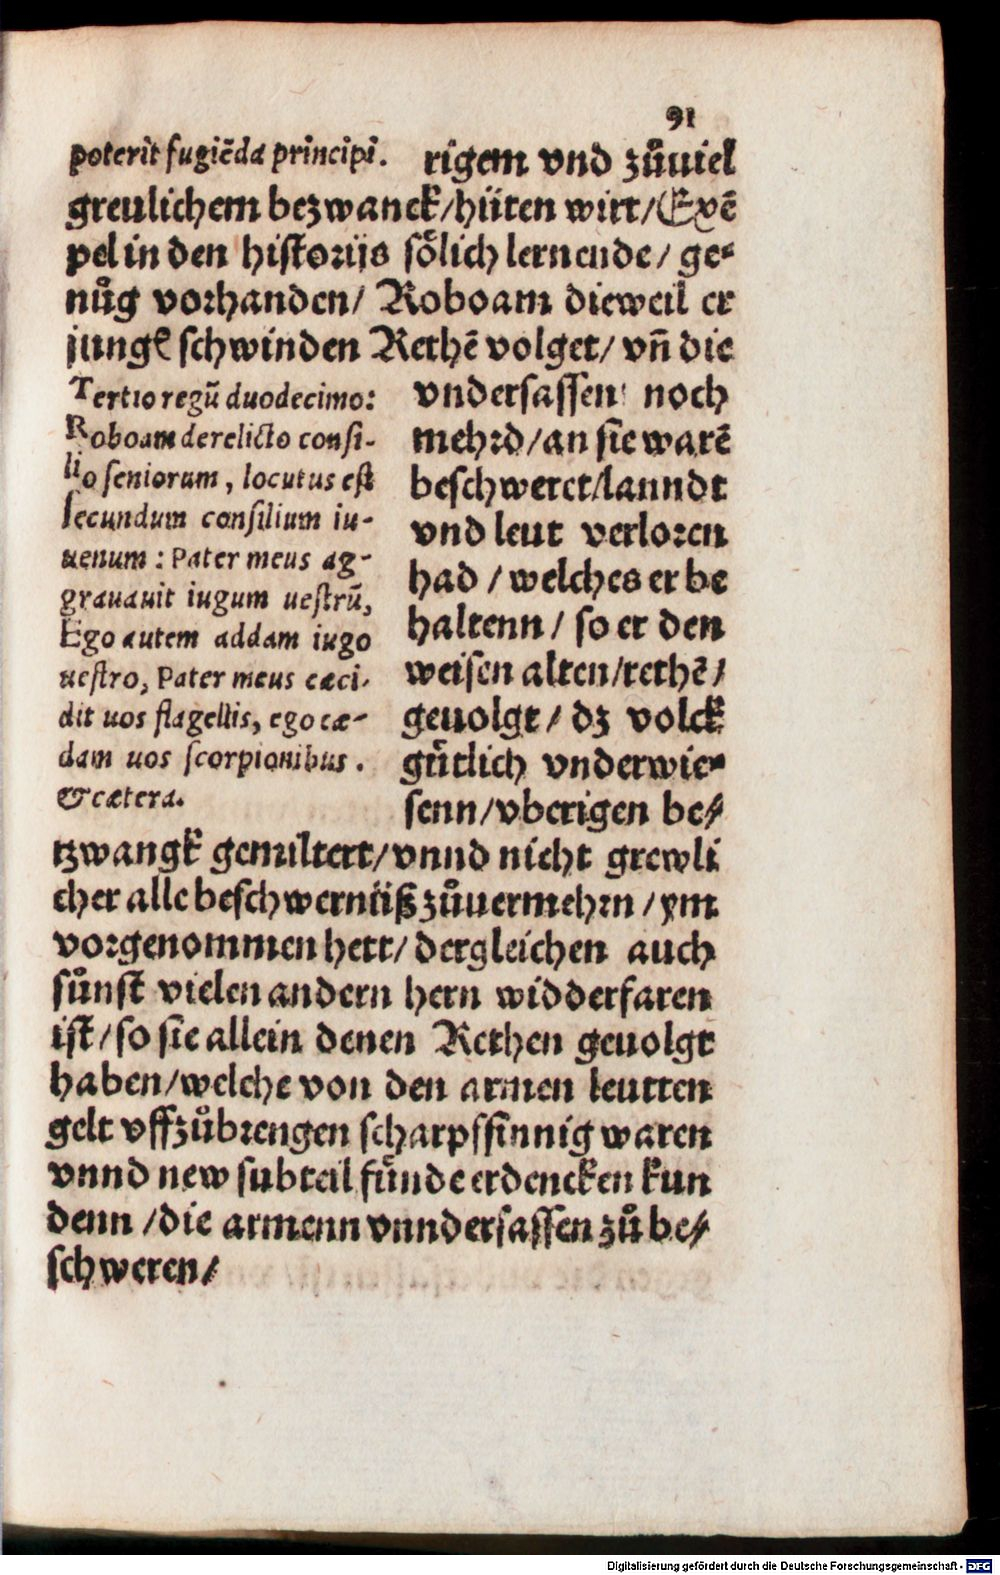 91
poterit fugiẽda principi.
rigem vnd zůuiel
greulichem bezwanck/hüten wirt/Exẽ
pel in den historijs sölich lernende/ ge-
nůg vorhanden/ Roboam dieweil er
jungẽ schwinden Rethẽ volget/ vñ die
Tertio regũ duodecimo:
Roboam derelicto consi-
lio seniorum, locutus est
secundum consilium iu-
uenum: Pater meus ag-
grauauit iugum uestrũ,
Ego autem addam iugo
uestro, Pater meus cæci-
dit uos flagellis, ego cæ-
dam uos scorpionibus.
&cætera.
vndersassen noch
mehrd/an sie warẽ
beschweret/lanndt
vnd leut verloren
had / welches er be
haltenn/ so er den
weisen alten/rethẽ/
geuolgt/ dz volck
gütlich vnderwie-
senn/vberigen be/
tzwangk gemiltert/vnnd nicht grewli
cher alle beschwernüß zůuermehrn/ym
vorgenommen hett/ dergleichen auch
sůnst vielen andern hern widderfaren
ist/so sie allein denen Rethen geuolgt
haben/welche von den armen leutten
gelt vffzůbrengen scharpssinnig waren
vnnd new subteil fünde erdencken kun
denn /die armenn vnndersassen zů be/
schweren/
Digitalisierung gefördert durch die Deutsche Forschungsgemeinschaft - DFG